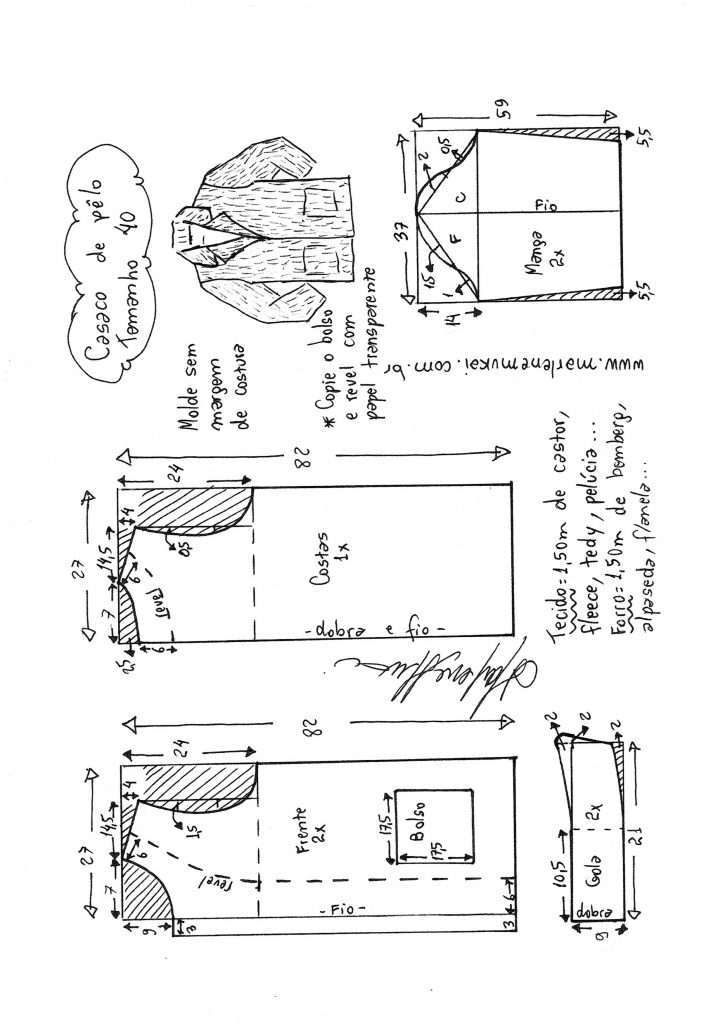 Casaco de pêlo
Tamanho 40
Molde sem
margem
de costura
* Copie o bolso
e revel com
papel transparente
www.marlenemukai.com.br
59
37
14
2
0,5
1,5
1
C
F
Fio
Manga
2x
5,5
5,5
82
24
27
14,5
4
7
6
2,5
6
0,5
revel
Costas
1x
- dobra e fio -
Tecido=1,50m de castor,
fleece, tedy, pelúcia...
Forro=1,50m de bemberg,
alpaseda, flanela...
82
24
27
14,5
4
7
6
9
3
1,5
revel
Frente
2x
Bolso
17,5
17,5
- Fio -
3
6
Gola 2x
dobra
10,5
21
9
2
2
2